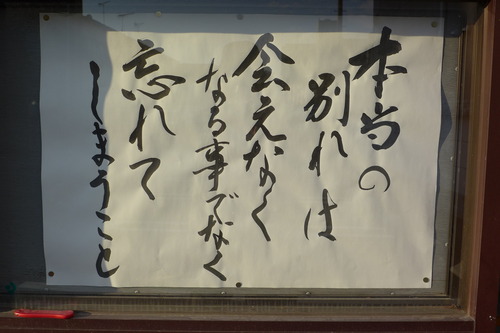 本当の
別れは
会えなく
なる事でなく
忘れて
しまうこと